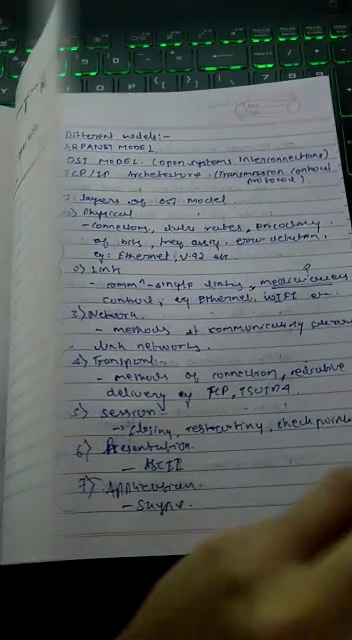 Different models:-
ARPANET MODEL
OSI MODEL. (open systems Interconnections)
TCP/IP Architecture. (Transmission control
protocol).
7 layers of OSI model
1) Physical
- connections, data rates, encoding
of bits, error detection,
eg: Ethernet, V.92 etc
2) Link
- comm^n - single links,
control, eg Ethernet, WIFI etc.
3) Network.
- methods of communicating
link networks.
4) Transport.
- methods of connection,
delivery eg TCP,
5) Session.
-> closing, restarting, checkpoint
6) Presentation.
- ASCII
7) Application.
- Skype.